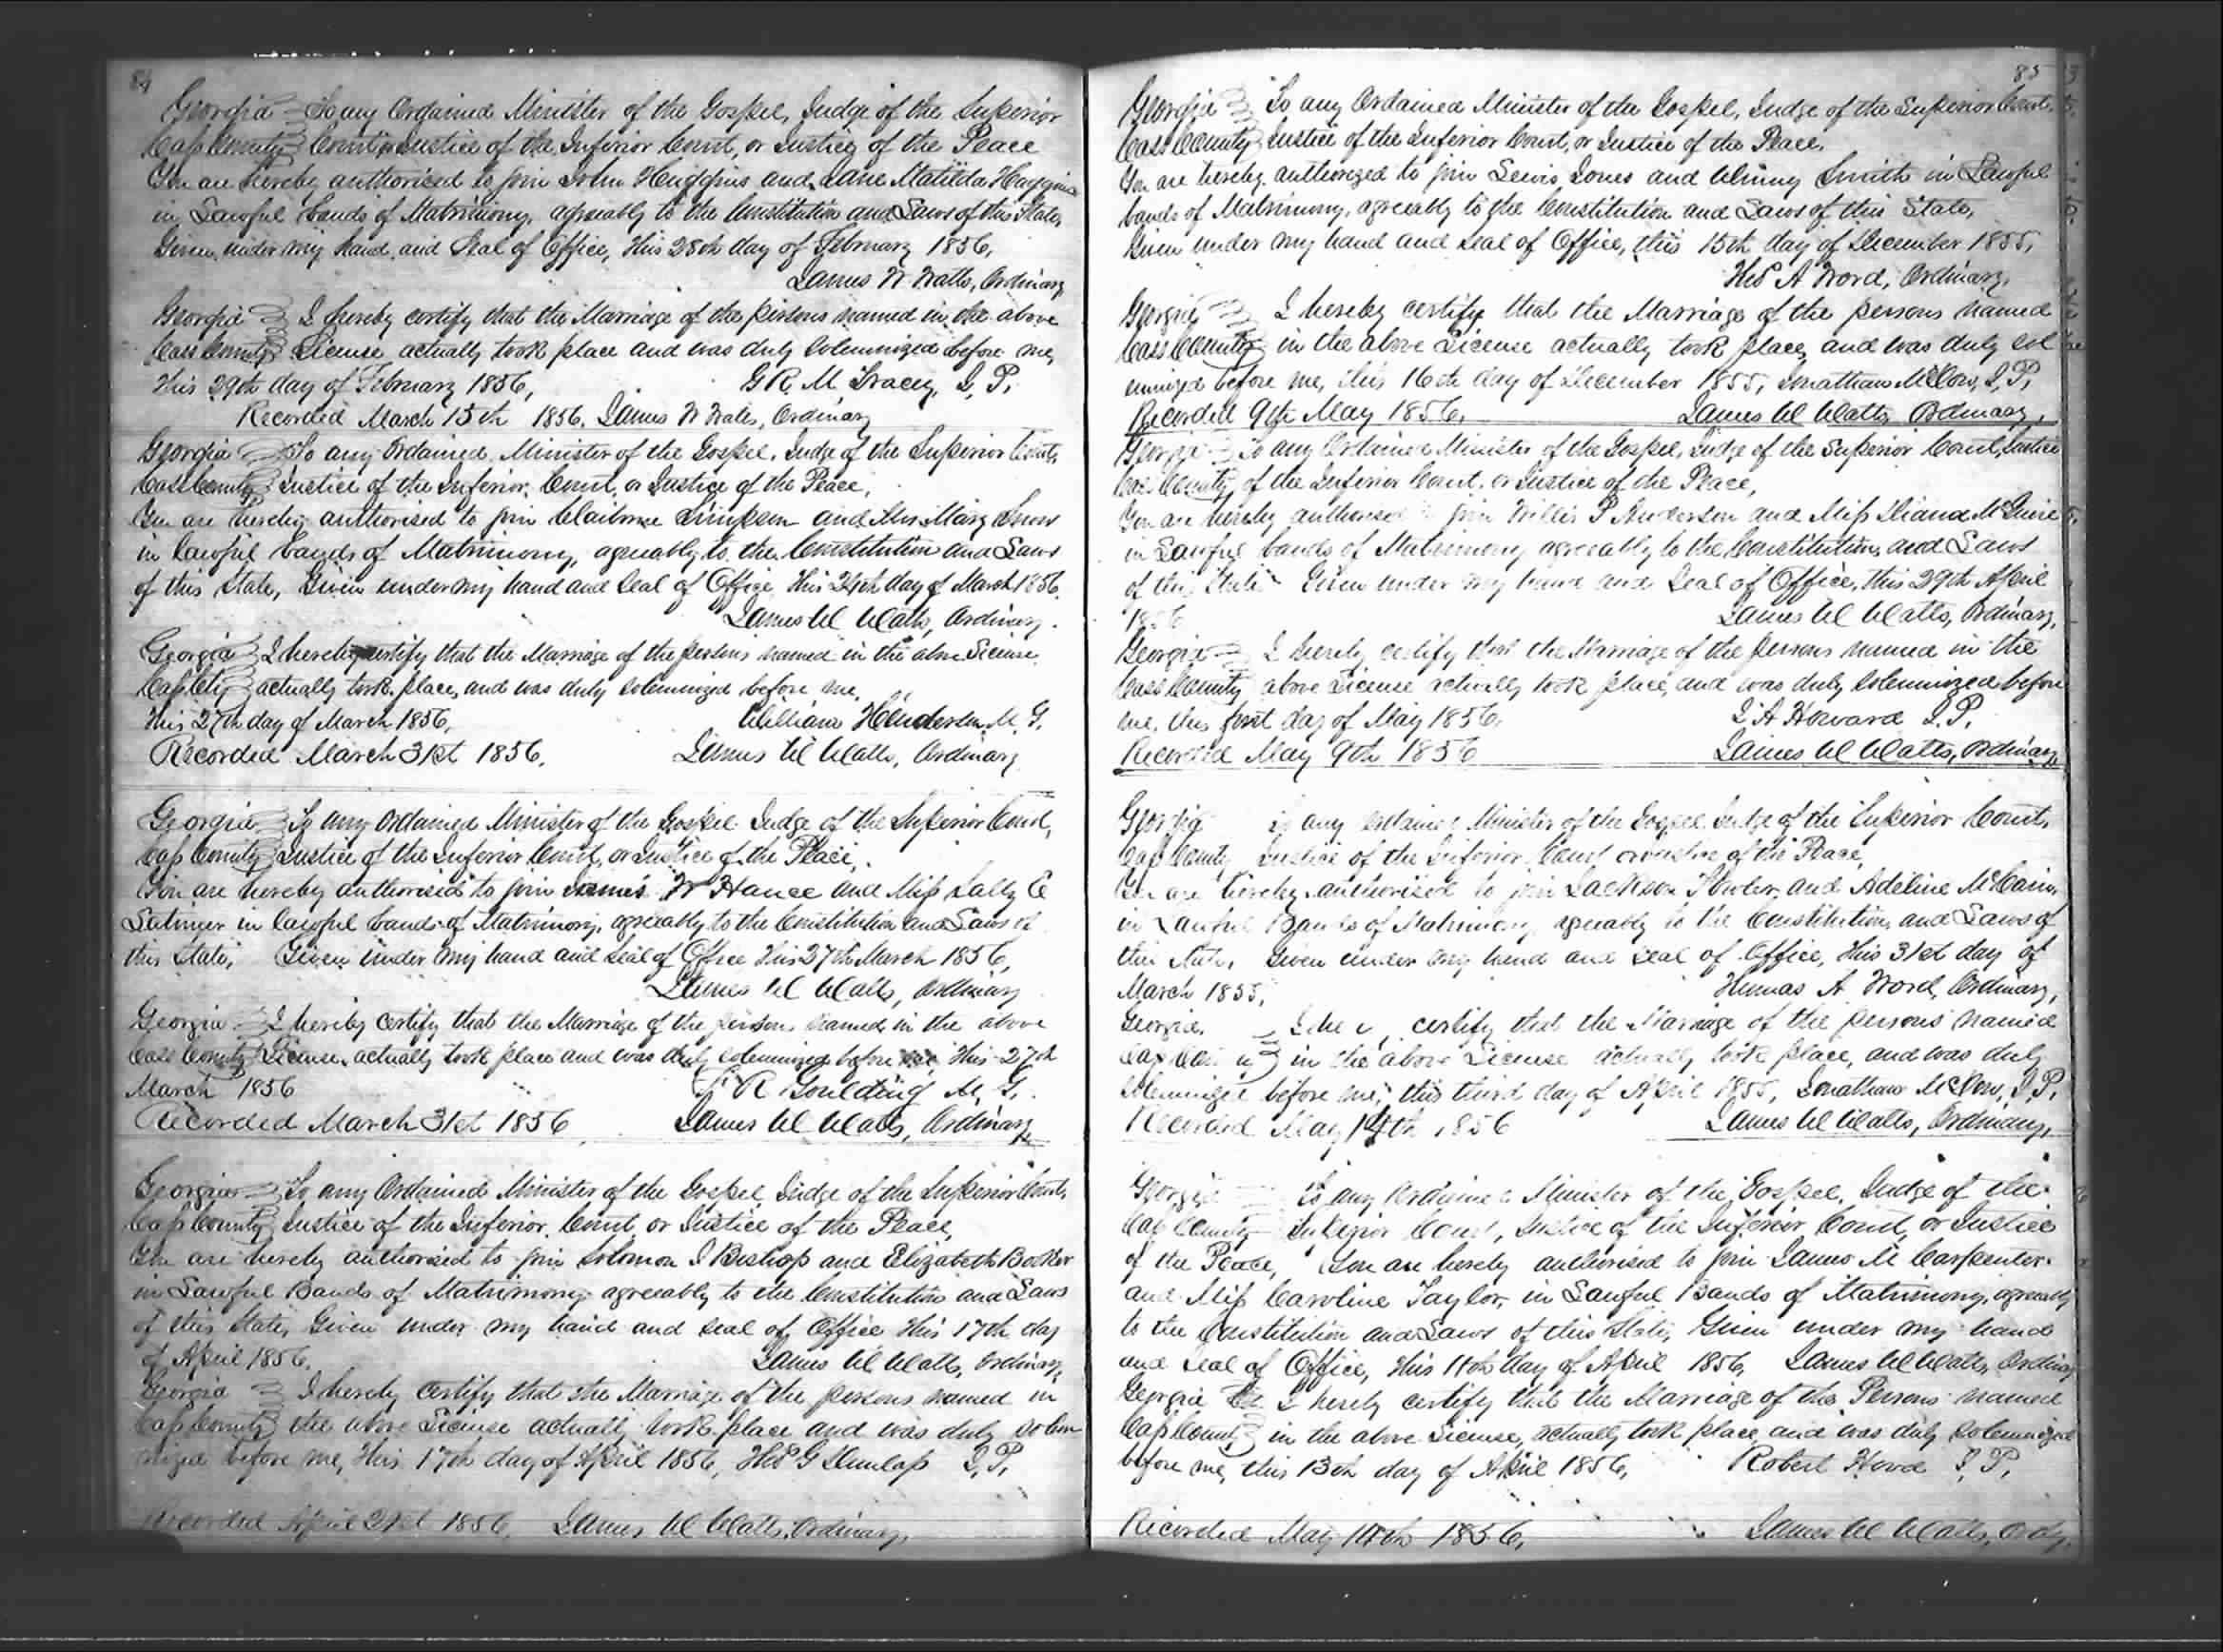 84
Georgia To any Ordained Minister of the Gospel, Judge of the Superior
Cass County Court, Justice of the Inferior Court, or Justice of the Peace
You are hereby authorised to join John Huggins and Jane Matilda Huggins
in Lawful bands of Matrimony, agreeably to the Constitution and Laws of this State,
Given under my hand and Seal of Office, this 28th day of February 1856,
James W Watts, Ordinary
Georgia I hereby certify that the Marriage of the persons named in the above
Cass County License actually took place and was duly solemnized before me,
this 29th day of February 1856, G R. M Tracey, J, P,
Recorded March 15th 1856. James W Watts, Ordinary
Georgia To any Ordained Minister of the Gospel, Judge of the Superior Court,
Cass County Justice of the Inferior Court, or Justice of the Peace,
You are hereby authorised to join Claiborne Simpson and Mary Snow
in lawful bands of Matrimony, agreeably to the Constitution and Laws
of this State, Given under my hand and Seal of Office this 24th day of March 1856.
James W Watts, Ordinary.
Georgia I hereby certify that the Marriage of the persons named in the above License
Cass Cty actually took place, and was duly solemnized before me,
this 27th day of March 1856, William Henderson M. G.
Recorded March 31st 1856. James W Watts, Ordinary
Georgia To any Ordained Minister of the Gospel Judge of the Superior Court,
Cass County Justice of the Inferior Court, or Justice of the Peace,
You are hereby authorised to join James W Hance and Miss Sally E
Latimer in lawful bands of Matrimony, agreeably to the Constitution and Laws of
this State, Given under my hand and seal of Office this 27th March 1856,
James W Watts, Ordinary
Georgia I hereby certify that the Marriage of the persons named in the above
Cass County License, actually took place and was duly solemnized before me, this 27th
March 1856 F R Goulding M, G.
Recorded March 31st 1856 James W Watts, Ordinary
Georgia To any Ordained Minister of the Gospel, Judge of the Superior Court,
Cass County Justice of the Inferior Court, or Justice of the Peace,
You are hereby authorised to join Solomon J Bishop and Elizabeth
in Lawful Bands of Matrimony agreeably to the Constitution and Laws
of this State, Given under my hand and seal of Office this 17th day
of April 1856. James W Watts, Ordinary,
Georgia I hereby certify that the Marriage of the persons named in
Cass County the above License actually took place and was duly solem
nized before me, this 17th day of April 1856, Thos G Dunlap J, P,
Recorded April 21st 1856, James W Watts, Ordinary,
85
Georgia To any Ordained Minister of the Gospel, Judge of the Superior Court
Cass County Justice of the Inferior Court, or Justice of the Peace.
You are hereby authorized to join Lewis Jones and Winny Smith in Lawful
bands of Matrimony, agreeably to the Constitution and Laws of this State,
Given under my hand and seal of Office, this 15th day of December 1855,
Thos A Word, Ordinary,
Georgia I hereby certify that the Marriage of the persons named
Cass County in the above License actually took place, and was duly sol
emnized before me, this 16th day of December 1855, Jonathan McDow, J, P,
Recorded 9th May 1856, James W Watts Ordinary,
Georgia To any Ordained Minister of the Gospel, Judge of the Superior Court, Justice
Cass County of the Inferior Court, or Justice of the Peace,
You are hereby authorised to join Willis P Anderson and Miss Diana McGuire
in Lawful bands of Matrimony agreeably to the Constitution, and Laws
of this State Given under my hand and Seal of Office, this 29th April
1856 James W Watts, Ordinary,
Georgia I hereby certify that the Marriage of the persons named in the
Cass County above License actually took place, and was duly solemnized before
me, this first day of May 1856, J A Howard J. P.
Recorded May 9th 1856 James W Watts, Ordinary
Georgia To any Ordained Minister of the Gospel Judge of the Superior Court,
Cass County Justice of the Inferior Court or Justice of the Peace,
You are hereby authorised to join Jackson Fowler and Adeline McCain,
in Lawful Bands of Matrimony agreeably to the Constitution, and Laws of
this State, Given under my hand and seal of Office, this 31st day of
March 1855, Thomas A Word, Ordinary,
Georgia, I certify that the Marriage of the persons named
Cass County in the above License actually took place, and was duly
solemnized before me, this third day of April 1855, Jonathan McDow, J, P,
Recorded May 14th 1856 James W Watts, Ordinary,
Georgia To any Ordained Minister of the Gospel, Judge of the
Cass County Superior Court, Justice of the Inferior Court, or Justice
of the Peace, You are hereby authorised to join James M Carpenter
and Miss Caroline Taylor, in Lawful Bands of Matrimony, agreeably
to the Constitution and Laws of this State, Given under my hand
and Seal of Office, this 11th day of April 1856, James W Watts, Ordinary
Georgia I hereby certify that the Marriage of the Persons named
Cass County in the above License, actually took place, and was duly solemnized
before me, this 13th day of April 1856, Robert Hood J, P,
Recorded May 14th 1856, James W Watts, Ordy.